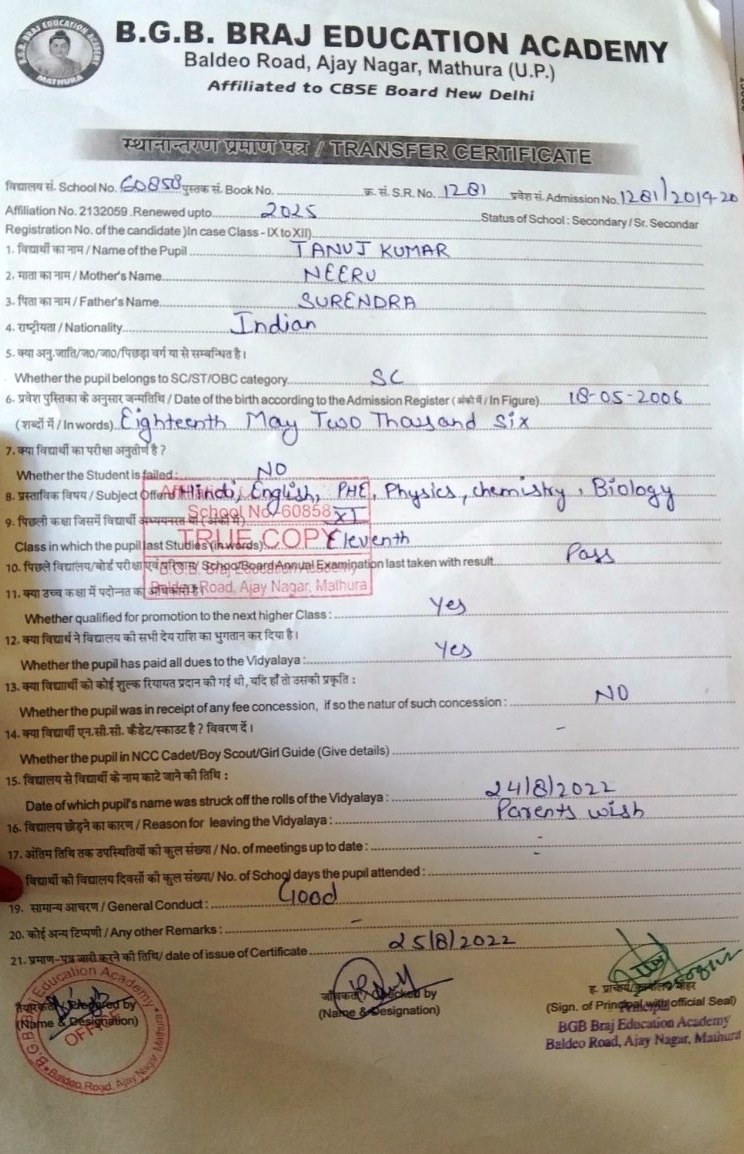 B.G.B. BRAJ EDUCATION ACADEMY
MATHURA
B.G.B. BRAJ EDUCATION ACADEMY
Baldeo Road, Ajay Nagar, Mathura (U.P.)
Affiliated to CBSE Board New Delhi
स्थानान्तरण प्रमाण पत्र / TRANSFER CERTIFICATE
विद्यालय सं. School No. 60858 पुस्तक सं. Book No. क्र. सं. S.R. No. 1281 प्रवेश सं. Admission No. 1281/2019-20
Affiliation No. 2132059 .Renewed upto 2025 Status of School : Secondary / Sr. Secondar
Registration No. of the candidate )In case Class - IX to XII)
1. विद्यार्थी का नाम / Name of the Pupil TANUJ KUMAR
2. माता का नाम / Mother's Name NEERU
3. पिता का नाम / Father's Name SURENDRA
4. राष्ट्रीयता / Nationality Indian
5. क्या अनु.जाति/ज0/जा0/पिछड़ा वर्ग या से सम्बन्धित है।
Whether the pupil belongs to SC/ST/OBC category SC
6. प्रवेश पुस्तिका के अनुसार जन्मतिथि / Date of the birth according to the Admission Register (अंको में / In Figure) 18-05-2006
(शब्दों में / In words) Eighteenth May Two Thousand Six
7. क्या विद्यार्थी का परीक्षा अनुतीर्ण है ?
Whether the Student is failed : NO
8. प्रस्ताविक विषय / Subject Offerd Hindi, English, PHE, Physics, chemistry, Biology
9. पिछली कक्षा जिसमें विद्यार्थी अध्ययनरत था (अंको में) XI
School No. 60858
TRUE COPY
Class in which the pupil last Studies (in words) Eleventh
10. पिछले विद्यालय/बोर्ड परीक्षा एवं परिणाम/ School/Board Annual Examination last taken with result Pass
Baldeo Road, Ajay Nagar, Mathura
11. क्या उच्च कक्षा में पदोन्नत का अधिकारी है
Whether qualified for promotion to the next higher Class : Yes
12. क्या विद्यार्थ ने विद्यालय की सभी देय राशि का भुगतान कर दिया है।
Whether the pupil has paid all dues to the Vidyalaya : Yes
13. क्या विद्यार्थी को कोई शुल्क रियायत प्रदान की गई थी, यदि हाँ तो उसकी प्रकृति :
Whether the pupil was in receipt of any fee concession, if so the natur of such concession : NO
14. क्या विद्यार्थी एन.सी.सी. कैडेट/स्काउट है ? विवरण दें। -
Whether the pupil in NCC Cadet/Boy Scout/Girl Guide (Give details)
15. विद्यालय से विद्यार्थी के नाम काटे जाने की तिथि :
Date of which pupil's name was struck off the rolls of the Vidyalaya : 24/8/2022
16. विद्यालय छोड़ने का कारण / Reason for leaving the Vidyalaya : Parents wish
17. अंतिम तिथि तक उपस्थितियों की कुल संख्या / No. of meetings up to date : -
विद्यार्थी की विद्यालय दिवसों की कुल संख्या/ No. of School days the pupil attended : -
19. सामान्य आचरण / General Conduct : Good
20. कोई अन्य टिप्पणी / Any other Remarks : -
21. प्रमाण-पत्र जारी करने की तिथि/ date of issue of Certificate 25/8/2022
Prepared by
(Name & Designation)
B.G.B. Braj Education Academy
OFFICE
Baldeo Road, Ajay Nagar, Mathura
Checked by
(Name & Designation)
(Sign. of Principal with official Seal)
Principal
BGB Braj Education Academy
Baldeo Road, Ajay Nagar, Mathura